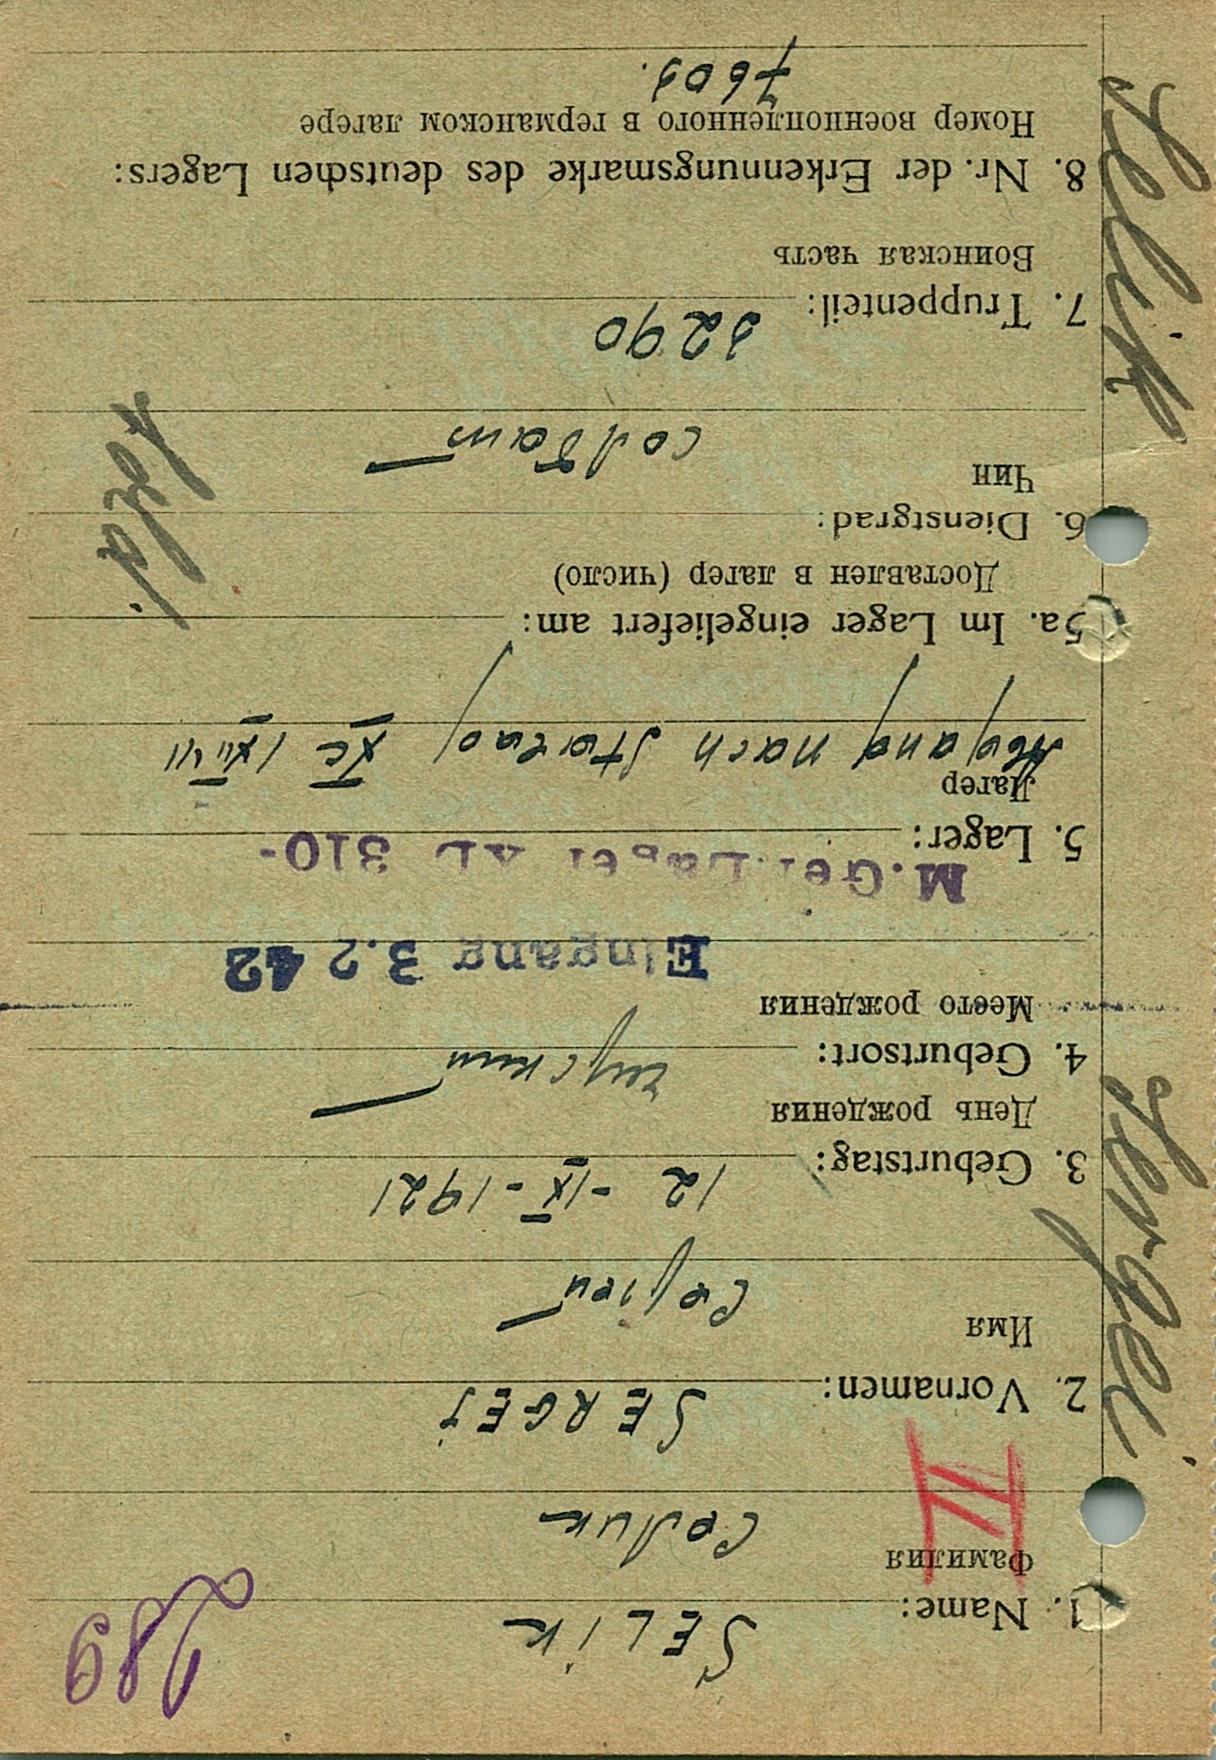 289
1. Name: SELIK
Фамилия
Селик
III
2. Vornamen: SERGEJ
Имя
Сергей
3. Geburtstag: 12-IX-1921
День рождения
4. Geburtsort:
Место рождения
Eingang 3.2 42
M.Gef. Lager XI D 310-
5. Lager:
Лагер
Abgang nach Stalag XC 1 XII 41
5a. Im Lager eingeliefert am:
Доставлен в лагер (число)
6. Dienstgrad:
Чин
солдат
Sold.
7. Truppenteil: 3290
Воинская часть
8. Nr. der Erkennungsmarke des deutschen Lagers:
Номер военнопленного в германском лагере
7605.
Sergei Selik